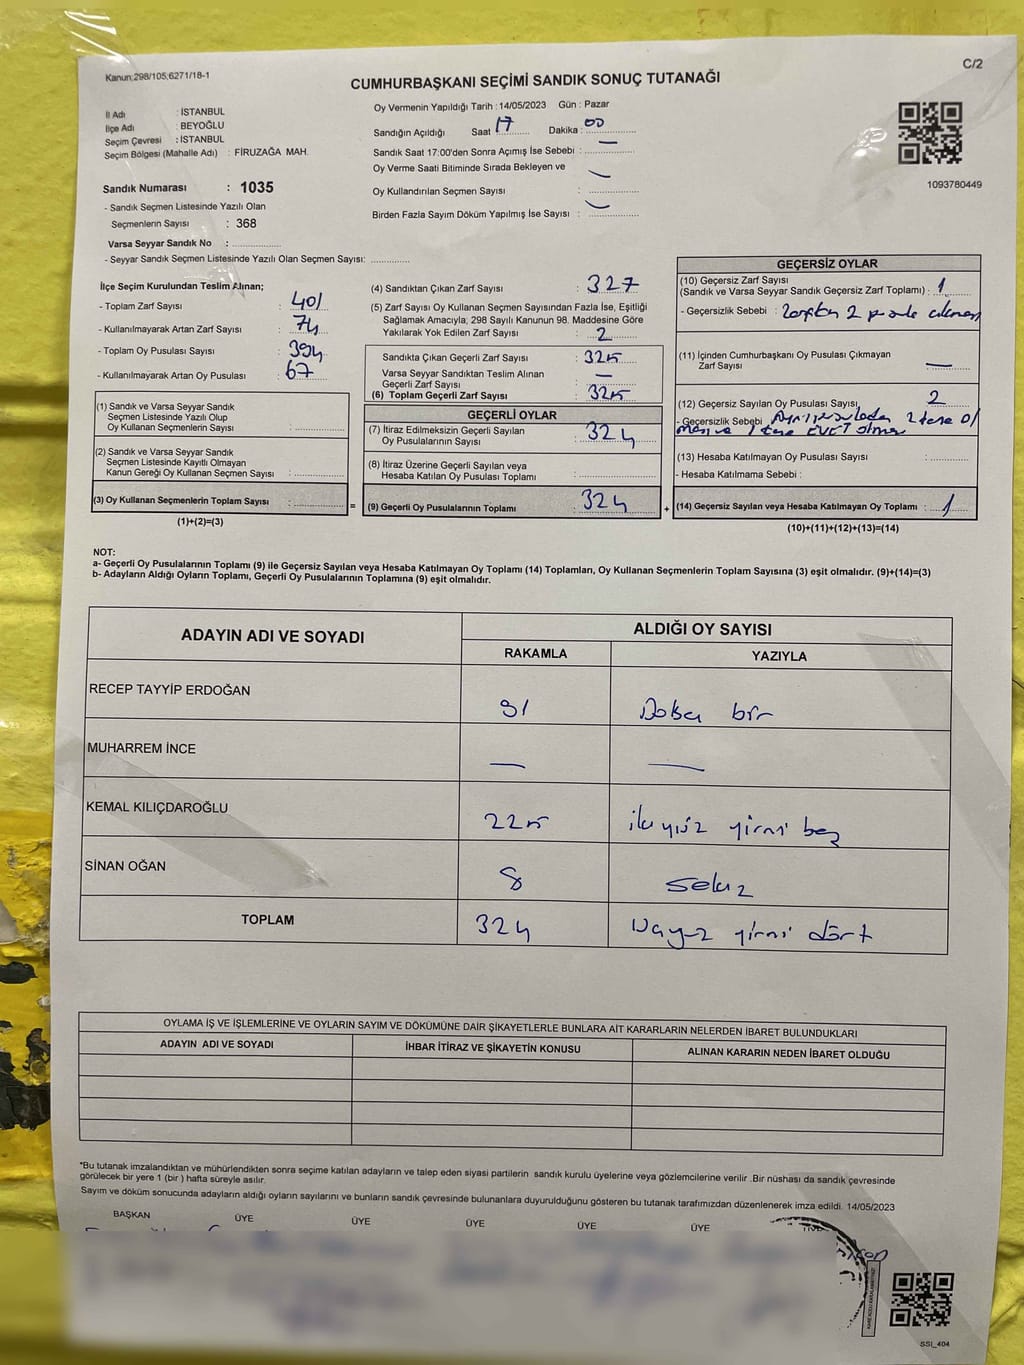 Kanun:298/105;6271/18-1
C/2
CUMHURBAŞKANI SEÇİMİ SANDIK SONUÇ TUTANAĞI
İl Adı : İSTANBUL
İlçe Adı : BEYOĞLU
Seçim Çevresi : İSTANBUL
Seçim Bölgesi (Mahalle Adı) : FİRUZAĞA MAH.
Sandık Numarası : 1035
- Sandık Seçmen Listesinde Yazılı Olan
Seçmenlerin Sayısı : 368
Varsa Seyyar Sandık No : ..............
- Seyyar Sandık Seçmen Listesinde Yazılı Olan Seçmen Sayısı: ............
Oy Vermenin Yapıldığı Tarih : 14/05/2023 Gün : Pazar
Sandığın Açıldığı Saat 17 Dakika : 00
Sandık Saat 17:00'den Sonra Açımış İse Sebebi : —
Oy Verme Saati Bitiminde Sırada Bekleyen ve
Oy Kullandırılan Seçmen Sayısı : —
Birden Fazla Sayım Döküm Yapılmış İse Sayısı : —
1093780449
İlçe Seçim Kurulundan Teslim Alınan;
- Toplam Zarf Sayısı : 401
- Kullanılmayarak Artan Zarf Sayısı : 74
- Toplam Oy Pusulası Sayısı : 394
- Kullanılmayarak Artan Oy Pusulası : 67
(1) Sandık ve Varsa Seyyar Sandık
Seçmen Listesinde Yazılı Olup
Oy Kullanan Seçmenlerin Sayısı :
(2) Sandık ve Varsa Seyyar Sandık
Seçmen Listesinde Kayıtlı Olmayan
Kanun Gereği Oy Kullanan Seçmen Sayısı :
(3) Oy Kullanan Seçmenlerin Toplam Sayısı :
(1)+(2)=(3)
=
(4) Sandıktan Çıkan Zarf Sayısı : 327
(5) Zarf Sayısı Oy Kullanan Seçmen Sayısından Fazla İse, Eşitliği
Sağlamak Amacıyla; 298 Sayılı Kanunun 98. Maddesine Göre
Yakılarak Yok Edilen Zarf Sayısı : 2
Sandıkta Çıkan Geçerli Zarf Sayısı : 325
Varsa Seyyar Sandıktan Teslim Alınan
Geçerli Zarf Sayısı : —
(6) Toplam Geçerli Zarf Sayısı : 325
GEÇERLİ OYLAR
(7) İtiraz Edilmeksizin Geçerli Sayılan
Oy Pusulalarının Sayısı : 324
(8) İtiraz Üzerine Geçerli Sayılan veya
Hesaba Katılan Oy Pusulası Toplamı :
(9) Geçerli Oy Pusulalarının Toplamı : 324
+
GEÇERSİZ OYLAR
(10) Geçersiz Zarf Sayısı
(Sandık ve Varsa Seyyar Sandık Geçersiz Zarf Toplamı) : 1
- Geçersizlik Sebebi : 2
(11) İçinden Cumhurbaşkanı Oy Pusulası Çıkmayan
Zarf Sayısı : —
(12) Geçersiz Sayılan Oy Pusulası Sayısı : 2
- Geçersizlik Sebebi 2 tane
1 tane EVET
(13) Hesaba Katılmayan Oy Pusulası Sayısı :
- Hesaba Katılmama Sebebi :
(14) Geçersiz Sayılan veya Hesaba Katılmayan Oy Toplamı : 1
(10)+(11)+(12)+(13)=(14)
NOT:
a- Geçerli Oy Pusulalarının Toplamı (9) ile Geçersiz Sayılan veya Hesaba Katılmayan Oy Toplamı (14) Toplamları, Oy Kullanan Seçmenlerin Toplam Sayısına (3) eşit olmalıdır. (9)+(14)=(3)
b- Adayların Aldığı Oyların Toplamı, Geçerli Oy Pusulalarının Toplamına (9) eşit olmalıdır.
ADAYIN ADI VE SOYADI
ALDIĞI OY SAYISI
RAKAMLA YAZIYLA
RECEP TAYYİP ERDOĞAN 91 Doksan bir
MUHARREM İNCE — —
KEMAL KILIÇDAROĞLU 225 iki yüz yirmi beş
SİNAN OĞAN 8 Sekiz
TOPLAM 324 Üçyüz yirmi dört
OYLAMA İŞ VE İŞLEMLERİNE VE OYLARIN SAYIM VE DÖKÜMÜNE DAİR ŞİKAYETLERLE BUNLARA AİT KARARLARIN NELERDEN İBARET BULUNDUKLARI
ADAYIN ADI VE SOYADI İHBAR İTİRAZ VE ŞİKAYETİN KONUSU ALINAN KARARIN NEDEN İBARET OLDUĞU
*Bu tutanak imzalandıktan ve mühürlendikten sonra seçime katılan adayların ve talep eden siyasi partilerin sandık kurulu üyelerine veya gözlemcilerine verilir .Bir nüshası da sandık çevresinde
görülecek bir yere 1 (bir ) hafta süreyle asılır.
Sayım ve döküm sonucunda adayların aldığı oyların sayılarını ve bunların sandık çevresinde bulunanlara duyurulduğunu gösteren bu tutanak tarafımızdan düzenlenerek imza edildi. 14/05/2023
BAŞKAN ÜYE ÜYE ÜYE ÜYE ÜYE
SSI_404